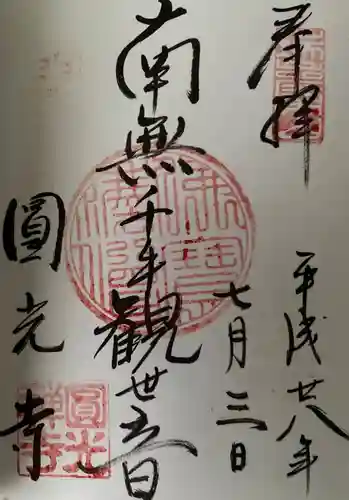 奉拝
平成廿八年
七月三日
南無千手観世音
圓光寺
圓光
禪寺